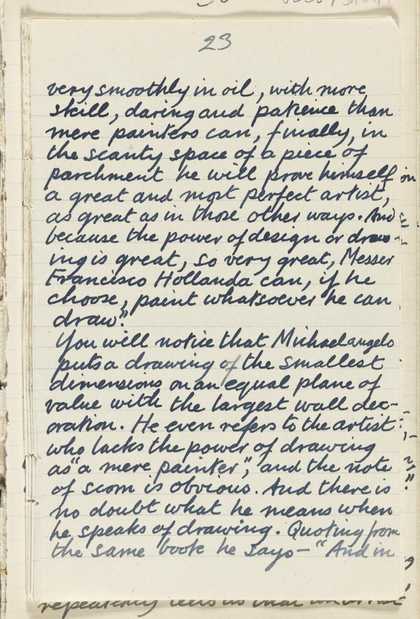 23
very smoothly in oil, with more
skill, daring and patience than
mere painters can, finally, in
the scanty space of a piece of
parchment he will prove himself
a great and most perfect artist,
as great as in those other ways. And
because the power of design or draw-
ing is great, so very great, Messer
Francisco Hollanda can, if he
choose, paint whatsoever he can
draw."
You will notice that Michaelangelo
puts a drawing of the smallest
dimensions on an equal plane of
value with the largest wall dec-
oration. He even refers to the artist
who lacks the power of drawing
as "a mere painter", and the note
of scorn is obvious. And there is
no doubt what he means when
he speaks of drawing. Quoting from
the same book he says – "And in
repeatedly